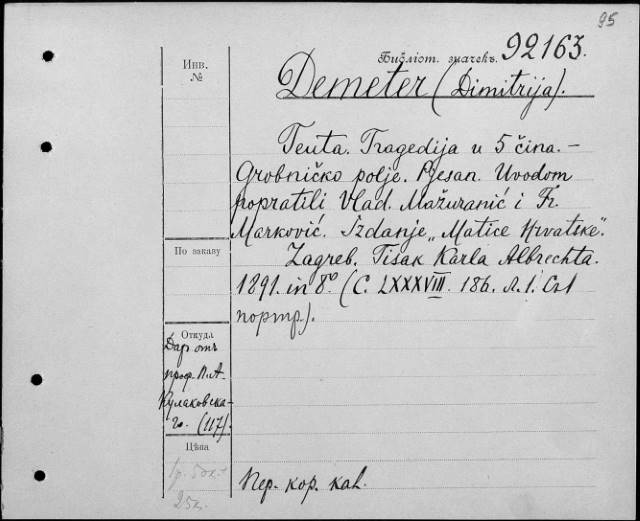 95
Библіот. значекъ. 92163.
Инв.
№
Demeter (Dimitrija).
Teuta. Tragedija u 5 čina. –
Grobničko polje. Pjesan. Uvodom
popratili Vlad. Mažuranić i Fr.
Marković. Izdanje „Matice Hrvatske".
Zagreb. Tisak Karla Albrechta.
1891. in 8º. (С. LXXXVIII. 186. л. 1. Съ 1
портр.).
По заказу
Откуда
Даръ отъ
проф. П. А.
Кулаковска-
го. (117).
Цѣна
1р. 50к.+
25к.
Пер. кор. кал.